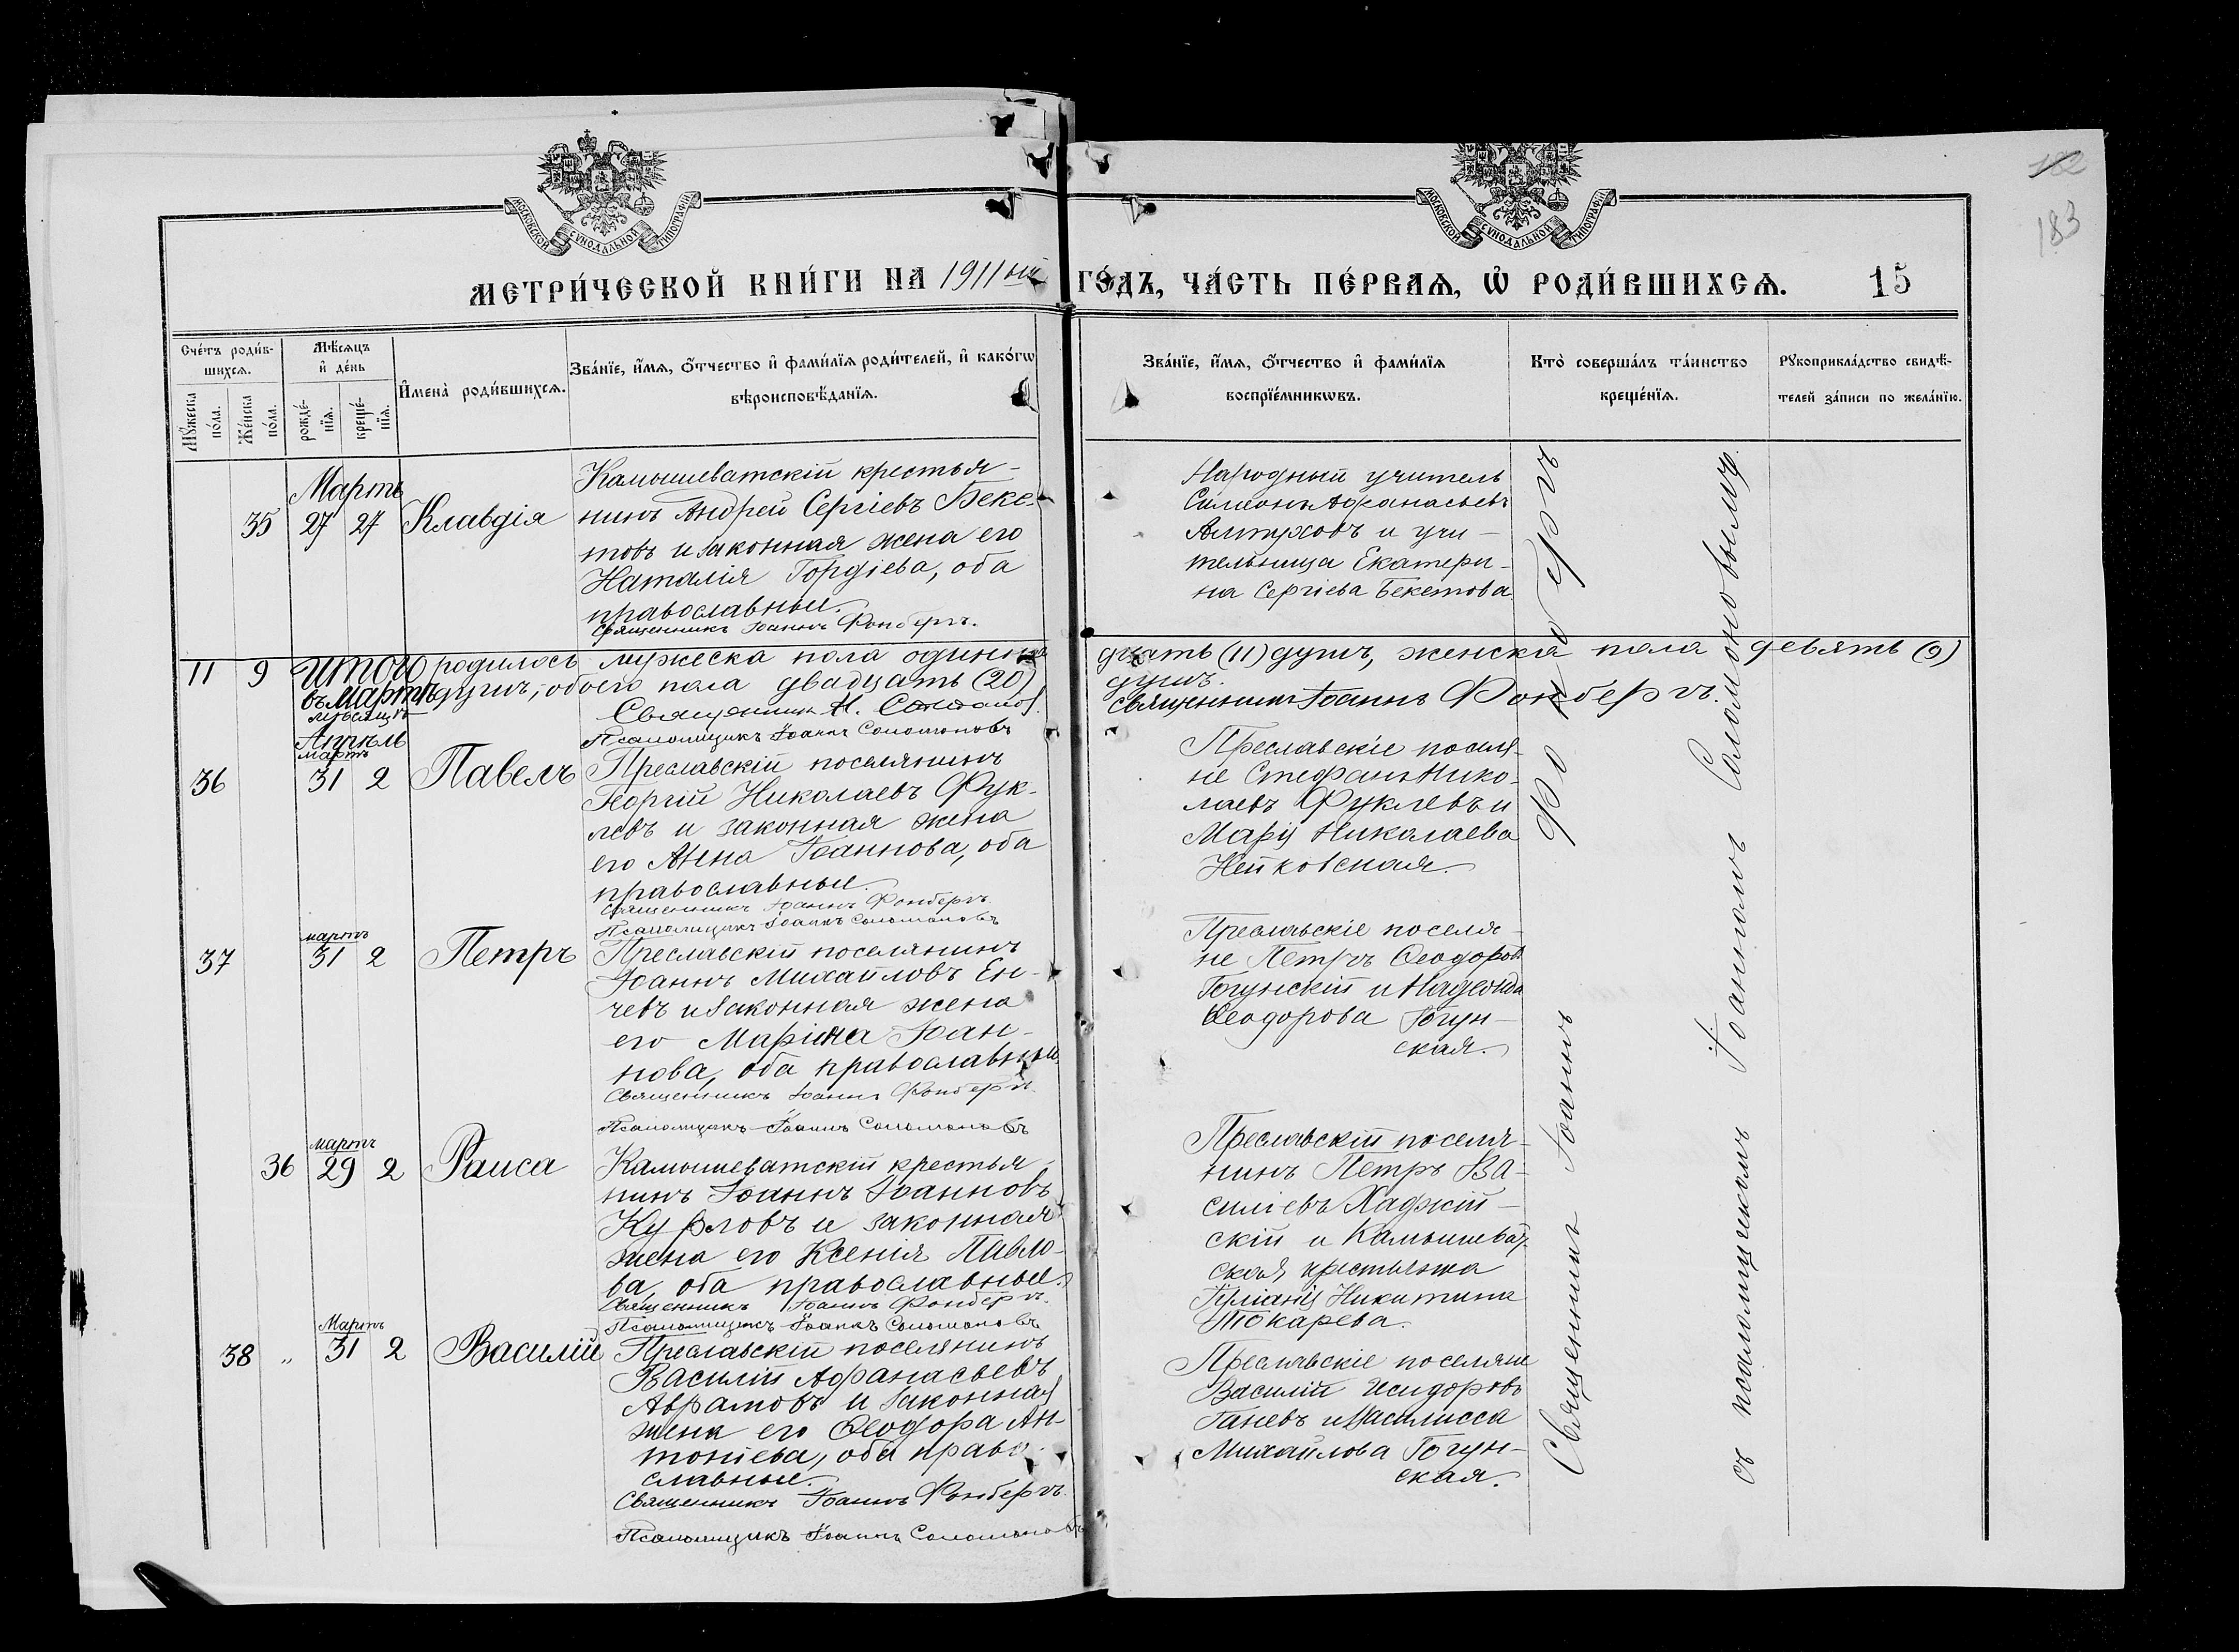 МОСКОВСКОЙ СѴНОДАЛЬНОЙ ТИПОГРАФІИ
МОСКОВСКОЙ СѴНОДАЛЬНОЙ ТИПОГРАФІИ
182
183
МЕТРИ́ЧЕСКОЙ КНИ́ГИ НА 1911ый ГО́ДЪ, ЧА́СТЬ ПЕ́РВАѦ, Ѡ҆ РОДИ́ВШИХСѦ. 15
Сче́тъ роди́в-
шихсѧ.
Мꙋ́жеска
по́ла.
Же́нска
по́ла.
Мѣ́сѧцъ
и҆ де́нь
рожде́-
нїѧ.
креще́-
нїѧ.
И҆мена̀ роди́вшихсѧ.
Зва́нїе, и҆́мѧ, ѻ҆́тчество и҆ фами́лїѧ роди́телей, и҆ како́гѡ
вѣроисповѣ́данїѧ.
Зва́нїе, и҆́мѧ, ѻ҆́тчество и҆ фами́лїѧ
воспрїе́мникѡвъ.
Кто̀ соверша́лъ та́инство
креще́нїѧ.
Рꙋкоприкла́дство свидѣ́-
телей за́писи по жела́нїю.
Мартъ
35 27 27 Клавдія
Камышеватскій крестья-
нинъ Андрей Сергіевъ Беке-
товъ и законная жена его
Наталія Гордіева, оба
православные.
Священникъ Іоаннъ Фонбергъ.
Народный учитель
Симеонъ Афанасьевъ
Алтуховъ и учи-
тельница Екатери-
на Сергіева Бекетова
11 9 Итого родилось мужеска пола одинна
дцать (11) душъ, женска пола девять (9)
въ мартѣ душъ, обоего пола двадцать (20)
душъ.
мѣсяцѣ
Священник Н.
Священникъ Іоаннъ Фонбергъ.
Псаломщикъ Іоаннъ Соломоновъ
Апрѣль
мартъ
36 31 2 Павелъ
Преславскій поселянинъ
Георгій Николаевъ Фук-
левъ и законная жена
его Анна Іоаннова, оба
православные.
Священникъ Іоаннъ Фонбергъ.
Псаломщикъ Іоаннъ Соломоновъ
Преславскіе поселя-
не Стефанъ Нико-
лаевъ Фуклевъ и
Марія Николаева
Нейковская.
мартъ
37 31 2 Петръ
Преславскій поселянинъ
Іоаннъ Михайловъ Ен-
чевъ и законная жена
его Марина Іоан-
нова, оба православные.
Священникъ Іоаннъ Фонбергъ.
Псаломщикъ Іоаннъ Соломоновъ
Преславскіе поселя-
не Петръ Ѳеодоровъ
Гогунскій и Надежда
Ѳеодорова Гогун-
ская.
мартъ
36 29 2 Раиса
Камышеватскій крестья-
нинъ Іоаннъ Іоанновъ
Курловъ и законная
жена его Ксенія Павло-
ва, оба православные.
Священникъ Іоаннъ Фонбергъ.
Псаломщикъ Іоаннъ Соломоновъ
Преславскій поселя-
нинъ Петръ Ва-
силіевъ Хаджій-
скій и Камышеват-
ская крестьянка
Іуліанія Никитина
Токарева.
Мартъ
38 „ 31 2 Василій
Преславскій поселянинъ
Василій Афанасьевъ
Аврамовъ и законная
жена его Ѳеодора Ан-
тоніева, оба право-
славные.
Священникъ Іоаннъ Фонбергъ.
Псаломщикъ Іоаннъ Соломоновъ
Преславскіе поселяне
Василій Исидоровъ
Ганевъ и Василисса
Михайлова Гогун-
ская.
Священникъ Іоаннъ Фонбергъ
съ псаломщикомъ Іоанномъ Соломоновымъ.